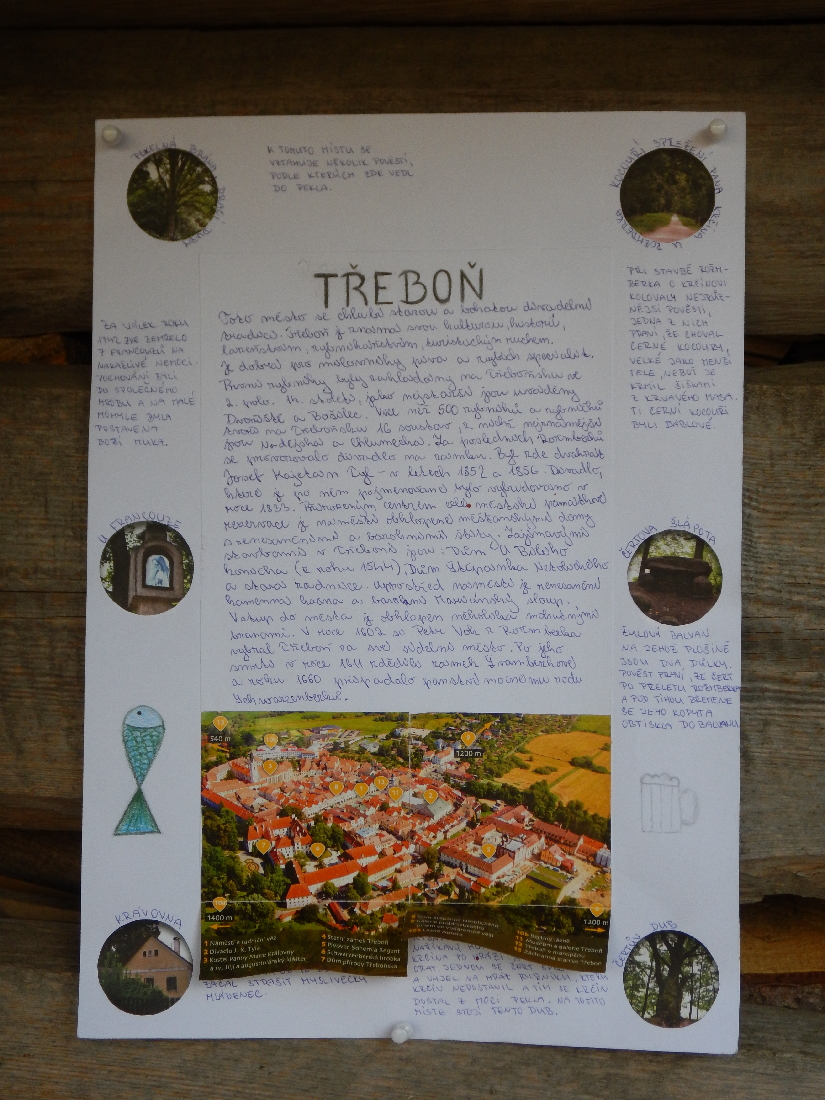 PEKELNÁ BRÁNA
K TOMUTO MÍSTU SE
VZTAHUJE NĚKOLIK POVĚSTÍ,
PODLE KTERÝCH ZDE VEDL
DO PEKLA.
KOCOUŘÍ SPŘEŽENÍ PANA KRČÍNA
TŘEBOŇ
Toto město se chlubí starou a bohatou divadelní
tradicí. Třeboň je známá svou kulturou, historií,
lázeňstvím, rybníkářstvím, turistickým ruchem.
Je dobrá pro milovníky piva a rybích specialit.
První rybníky byly zakládány na Třeboňsku ve
2. polo. 14. století, jako nejstarší jsou uváděny
Dvořiště a Bošilec. Více než 500 rybníků a rybniční
na Třeboňsku 16 soustav, z nichž nejznámější
jsou Nadějská a Chlumecká. Za posledních Rožmberků
se provozovalo divadlo na zámku. Byl zde dvakrát
Josef Kajetán Tyl - v letech 1852 a 1856. Divadlo,
které je po něm pojmenované bylo vybudováno v
roce 1833. Historickým centrem městské památkové
rezervace je náměstí obklopené měšťanskými domy
s renesančními a barokními štíty. Zajímavými
stavbami v Třeboni jsou: Dům U Bílého
koníčka (z roku 1544), Dům Štěpánka Netolického
a stará radnice. Uprostřed náměstí je renesanční
kamenná kašna a Mariánský sloup.
Vstup do města je obklopen několika mohutnými
branami. V roce 1602 si Petr Vok z Rožmberka
vybral Třeboň za své sídelní město. Po jeho
smrti v roce 1611 zdědili zámek Švamberkové
a roku 1660 připadalo panství mocnému rodu
Schwarzenberků.
ZA VÁLEK ROKU
1742 ZDE ZEMŘELO
7 FRANCOUZŮ NA
NAKAŽLIVÉ NEMOCI.
POCHOVÁNI BYLI
DO SPOLEČNÉHO
HROBU A NA MALÉ
MOHYLE BYLA
POSTAVENA
BOŽÍ MUKA.
PŘI STAVBĚ ROŽM-
BERKA O KRČÍNOVI
KOLOVALY NEJRŮZ-
NĚJŠÍ POVĚSTI,
JEDNA Z NICH
PRAVÍ, ŽE CHOVAL
ČERNÉ KOCOURY,
VELKÉ JAKO MENŠÍ
TELE, NEBOŤ JE
KRMIL ŠIŠKAMI
Z KRVAVÉHO MASA.
TI ČERNÍ KOCOUŘI
BYLI ĎÁBLOVÉ.
U FRANCOUZE
ČERTOVA ŠLÁPOTA
ŽULOVÝ BALVAN
NA JEHOŽ PLOŠINĚ
JSOU DVA DŮLKY.
POVĚST PRAVÍ, ŽE ČERT
PO PŘELETU ROŽMBERKA
A POD TÍHOU BŘEMENE
SE ZDE KOPYTA
OBTISKLA DO BALVANU.
13
540 m
1200 m
1400 m
1200 m
1 Náměstí s radniční věží
2 Divadlo J. K. Tyla
3 Kostel Panny Marie Královny
a sv. Jiljí a augustiniánský klášter
4 Státní zámek Třeboň
5 Pivovar Bohemia Regent
6 Schwarzenberská hrobka
7 Dům přírody Třeboňska
KRÁVOVNA
ZAČAL STRAŠIT MYSLIVECKÝ
MLÁDENEC
ČERTŮV DUB
KRČÍN NEDOSTAVIL A TÍM SE KRČÍN
DOSTAL Z MOCI PEKLA. NA TOMTO
MÍSTĚ STOJÍ TENTO DUB.